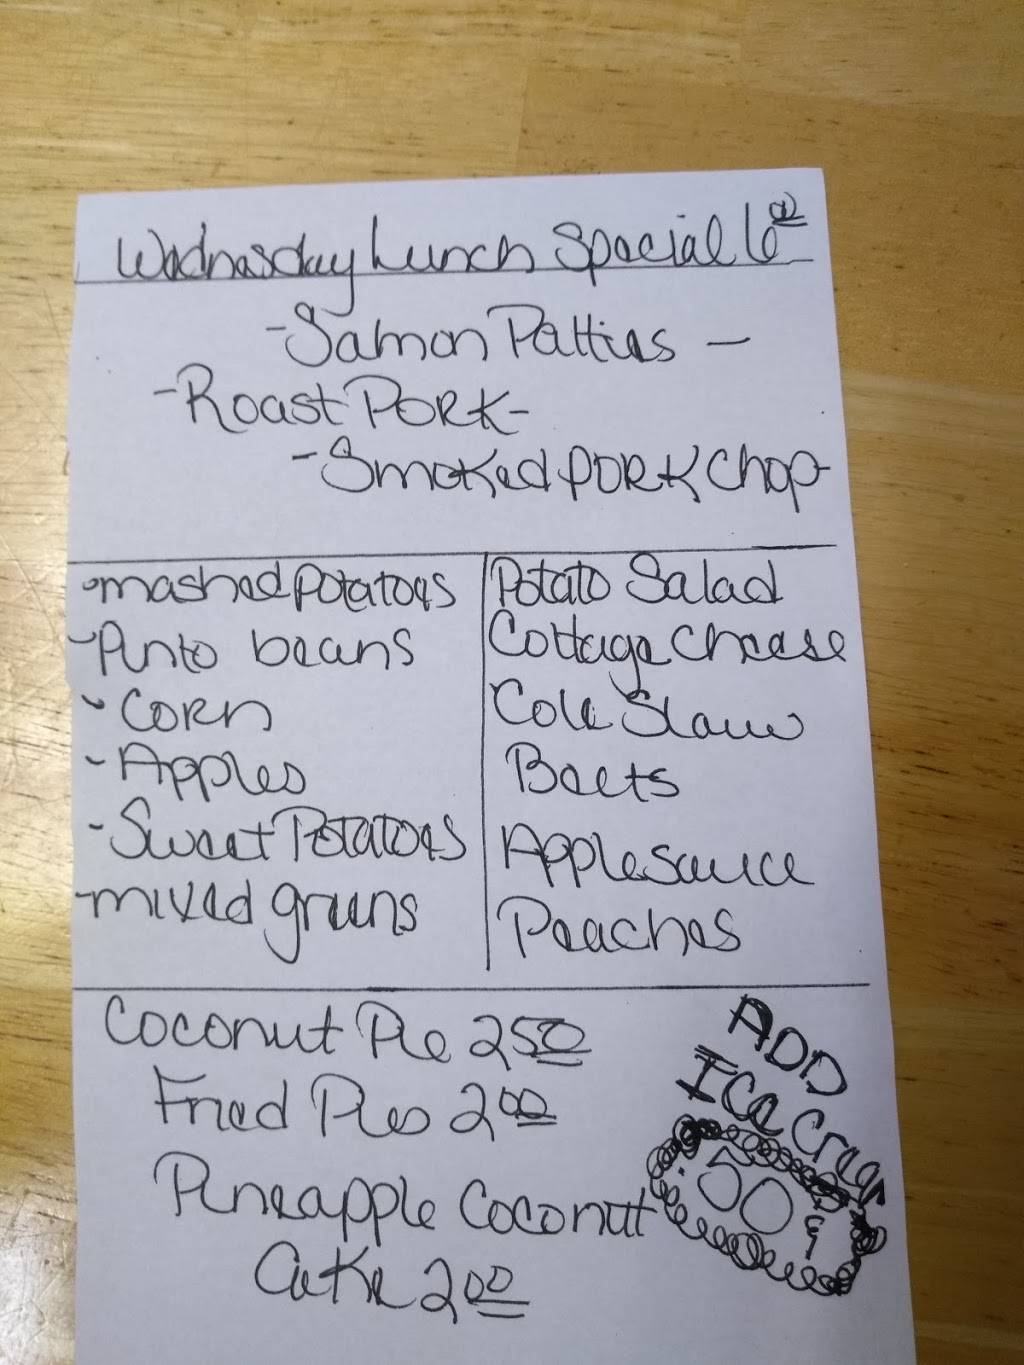 Wednesday Lunch Special 6
- Salmon Patties -
- Roast PORK -
- Smoked PORK Chop -
- mashed potatoes
- Pinto beans
- Corn
- Apples
- Sweet Potatoes
- mixed greens
Potato Salad
Cottage Cheese
Cole Slaw
Beets
Applesauce
Peaches
Coconut Pie 2 50
Fried Pies 2 00
Pineapple Coconut
Cake 2 00
ADD
Ice Cream
.50 ¢